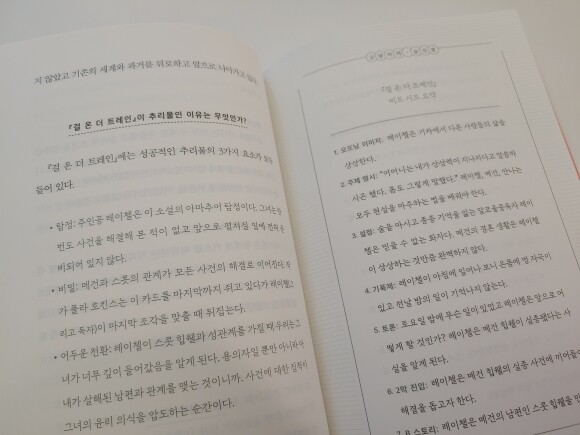 지 않았고 기존의 세계와 과거를 뒤로하고 앞으로 나아가고 있다.
『걸 온 더 트레인』이 추리물인 이유는 무엇인가?
『걸 온 더 트레인』에는 성공적인 추리물의 3가지 요소가 모두
들어 있다.
• 탐정: 주인공 레이첼은 이 소설의 아마추어 탐정이다. 그녀는 한
번도 사건을 해결해 본 적이 없고 앞으로 펼쳐질 일에 전혀 준
비되어 있지 않다.
• 비밀: 메건과 스콧의 관계가 모든 사건의 해결로 이어진다. 작
가 폴라 호킨스는 이 카드를 마지막까지 쥐고 있다가 레이첼(그
리고 독자)이 마지막 조각을 맞출 때 뒤집는다.
• 어두운 전환: 레이첼이 스콧 힙웰과 성관계를 가질 때 우리는 그
녀가 너무 깊이 들어갔음을 알게 된다. 용의자일 뿐만 아니라 아
내가 살해된 남편과 관계를 맺는 것이니까. 사건에 대한 집착이
그녀의 윤리 의식을 압도하는 순간이다.
『걸 온 더 트레인』
비트 시트 요약
1. 오프닝 이미지: 레이첼은 기차에서 다른 사람들의 삶을
상상한다.
2. 주제 명시: "어머니는 내가 상상력이 지나치다고 말씀하
시곤 했다. 톰도 그렇게 말했다." 레이첼, 메건, 안나는
모두 현실을 마주하는 법을 배워야 한다.
3. 설정: 술을 마시고 종종 기억을 잃는 알코올중독자 레이
첼은 믿을 수 없는 화자다. 메건의 결혼 생활은 레이첼
이 상상하는 것만큼 완벽하지 않다.
4. 기폭제: 레이첼이 아침에 일어나 보니 온몸에 멍 자국이
있고 전날 밤의 일이 기억나지 않는다.
5. 토론: 토요일 밤에 무슨 일이 있었고 레이첼은 앞으로 어
떻게 할 것인가? 레이첼은 메건 힙웰이 실종됐다는 사
실을 알게 된다.
6. 2막 진입: 레이첼은 메건 힙웰의 실종 사건에 끼어들어
해결을 돕고자 한다.
7. B 스토리: 레이첼은 메건의 남편인 스콧 힙웰을 만